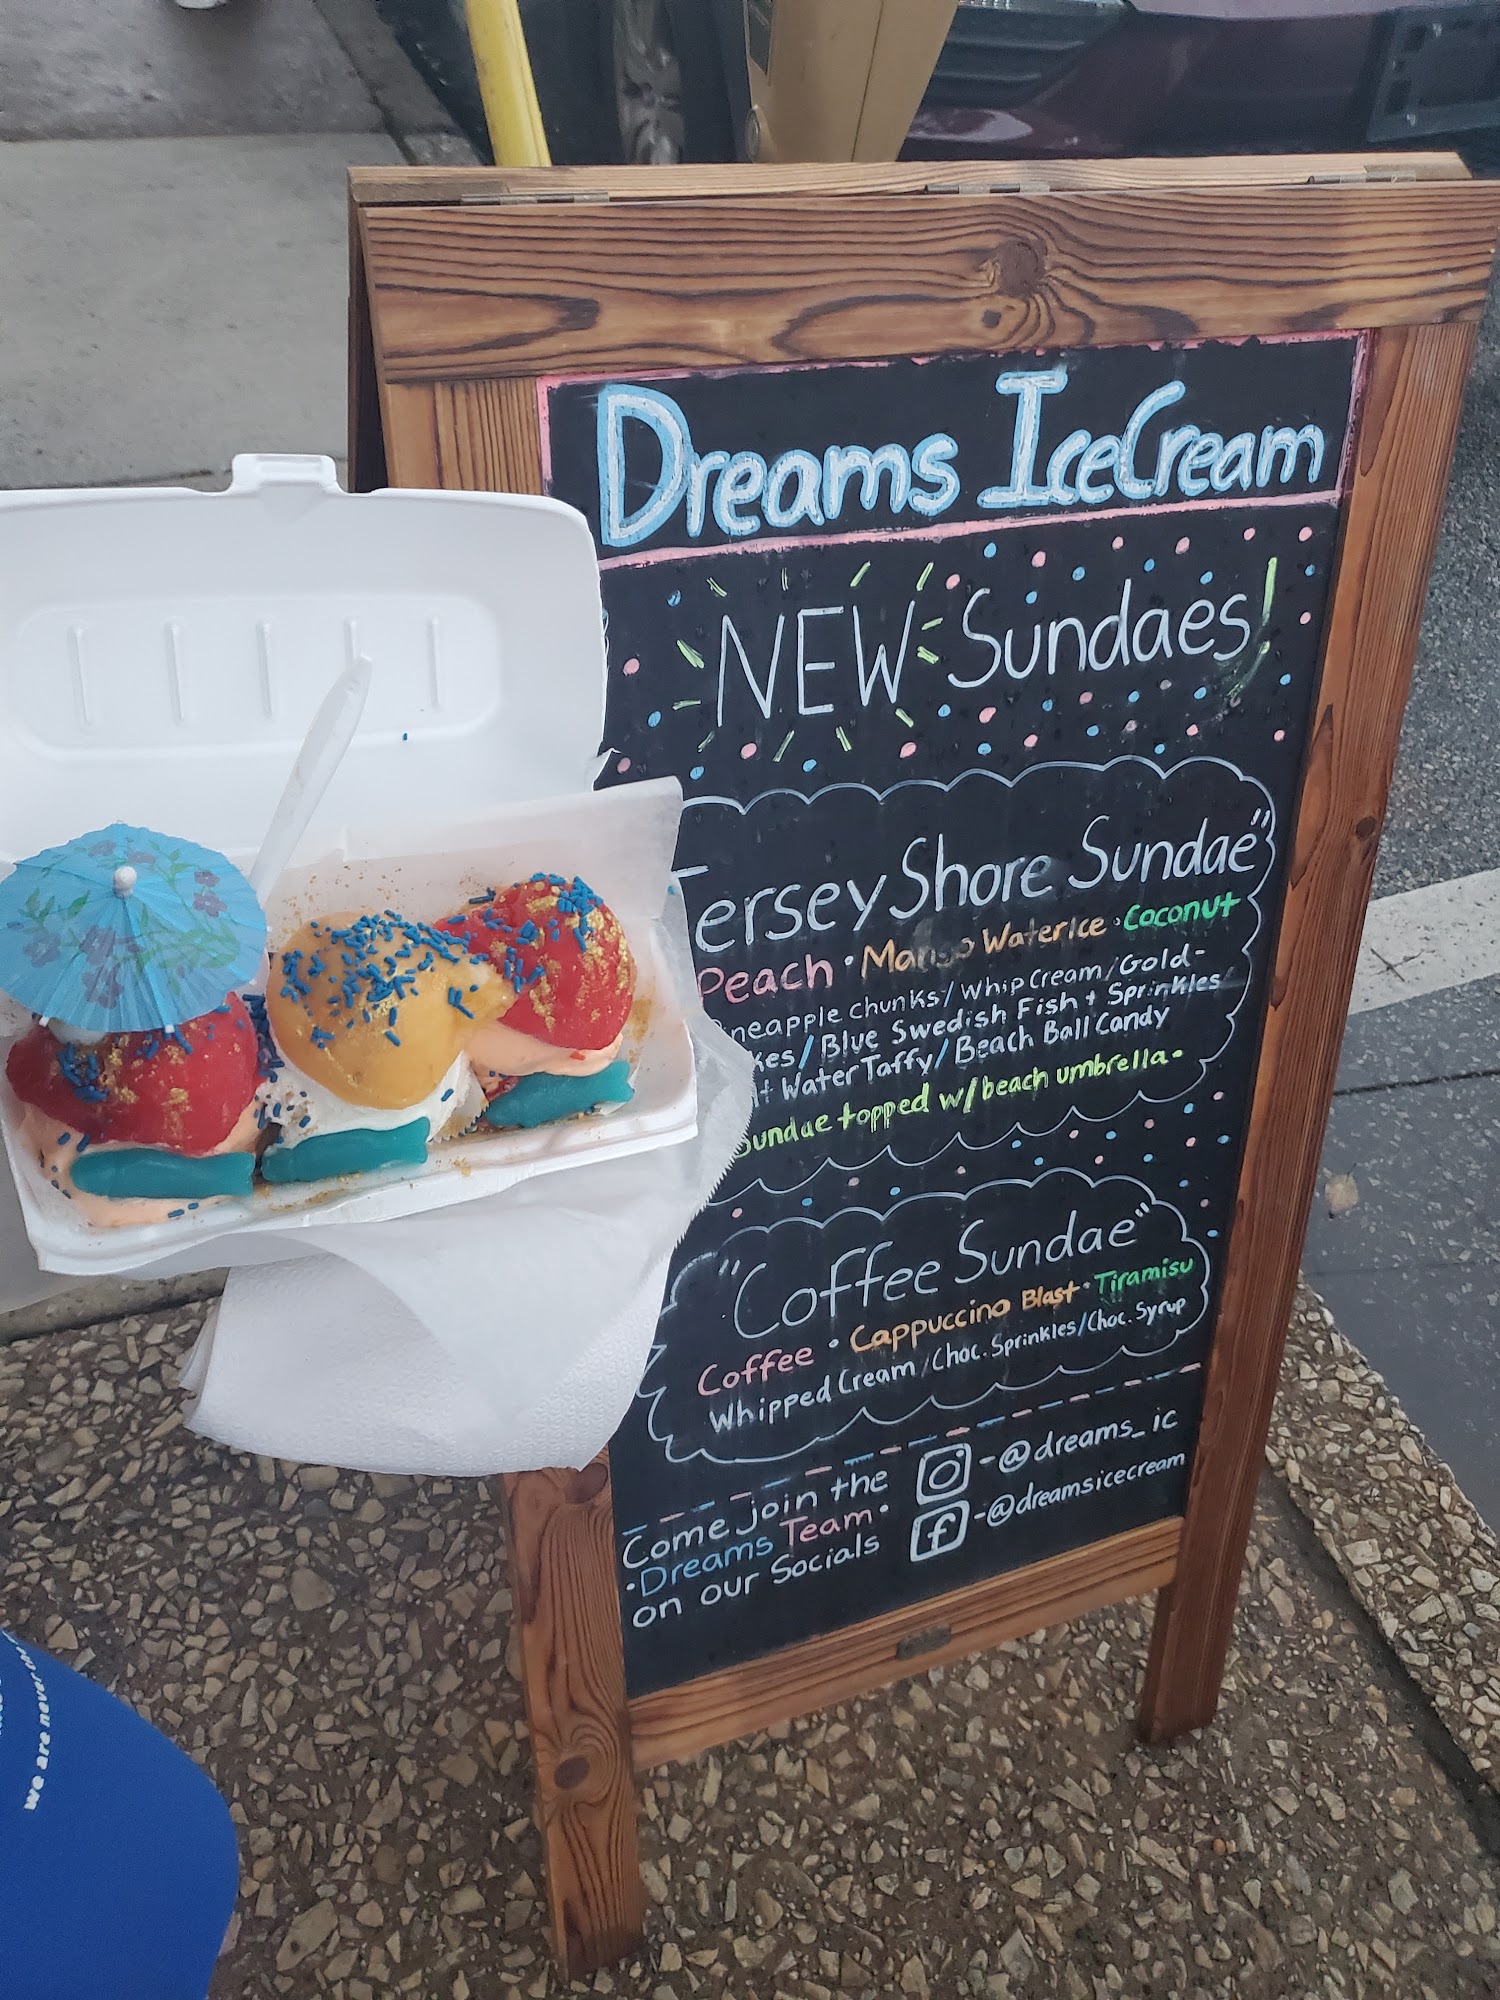 Dreams IceCream
NEW Sundaes!
Jersey Shore Sundae"
Peach • Mango WaterIce • Coconut
neapple chunks/Whip Cream/Gold-
kes/Blue Swedish Fish + Sprinkles/
t Water Taffy/Beach Ball Candy
Sundae topped w/beach umbrella•
"Coffee Sundae"
Coffee • Cappuccino Blast • Tiramisu
Whipped Cream/Choc. Sprinkles/Choc. Syrup
Come join the
•Dreams Team•
on our Socials
-@dreams_ic
-@dreamsicecream
we are never